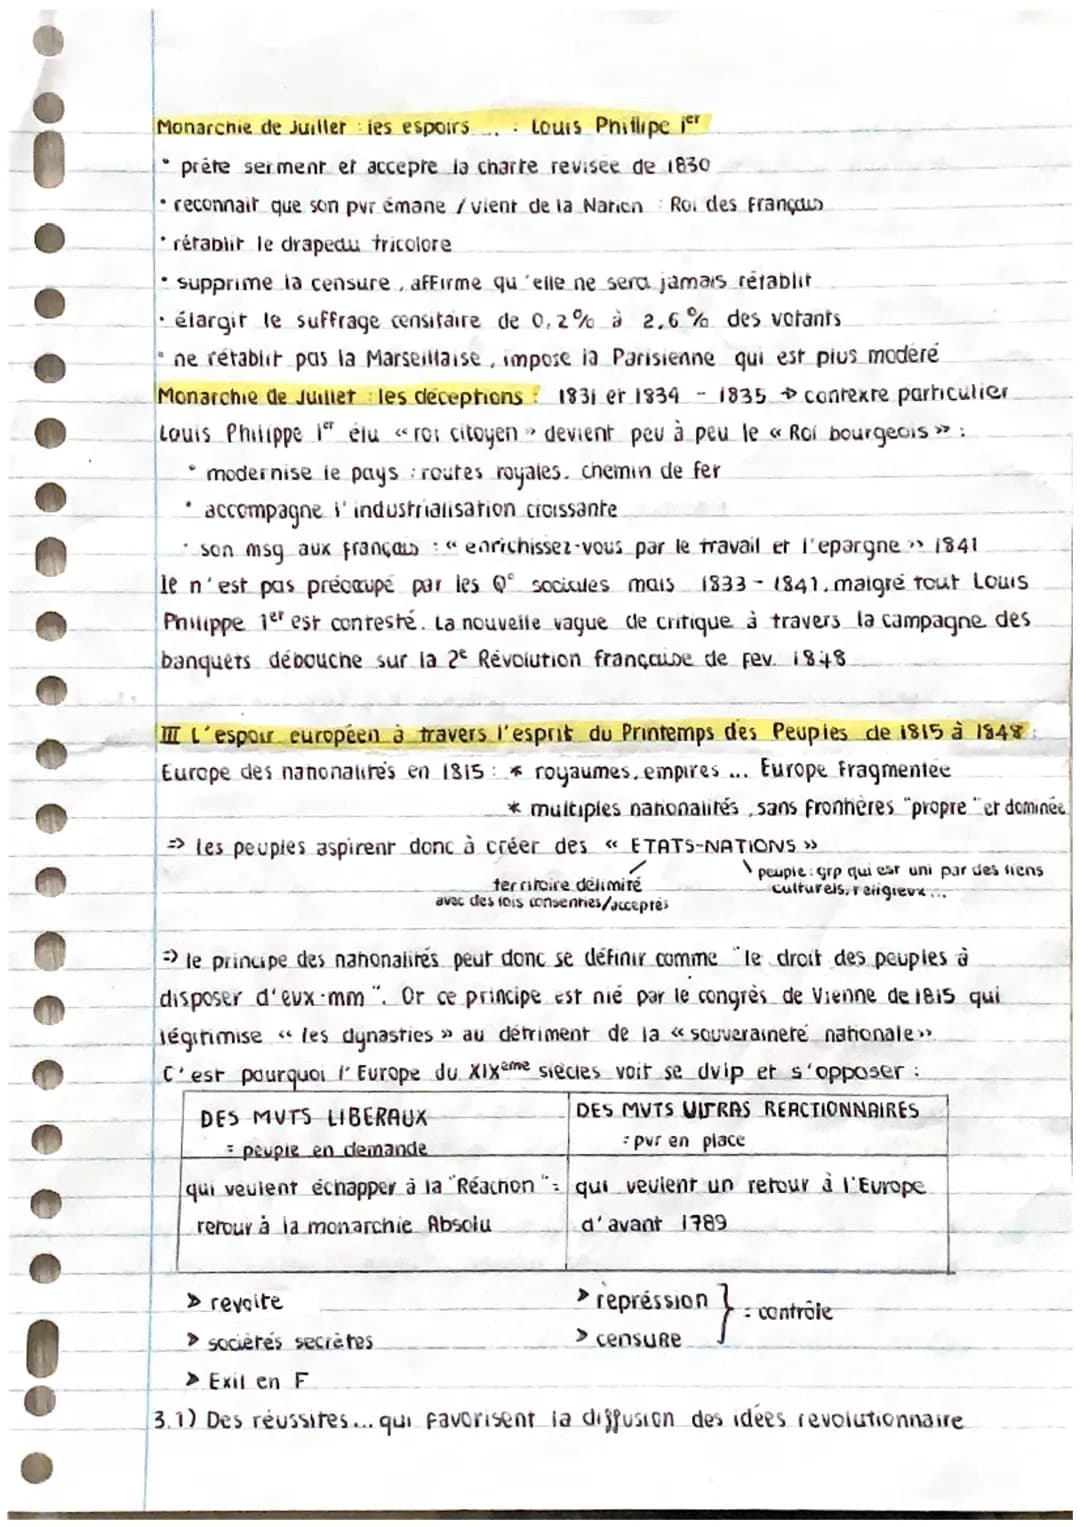 Monarchie de Juillet : les espoirs ... : Louis Philipe Ier
• prête serment et accepte la charte revisée de 1830
• reconnait que son pvr émane / vient de la Nation : Roi des Français
• rétablit le drapeau tricolore
• supprime la censure, affirme qu'elle ne sera jamais rétablit
• élargit le suffrage censitaire de 0,2% à 2,6% des votants
• ne rétablit pas la Marseillaise, impose la Parisienne qui est plus modéré
Monarchie de Juillet : les déceptions : 1831 et 1834 - 1835 → contexte particulier
Louis Philippe Ier élu « roi citoyen » devient peu à peu le « Roi bourgeois » :
• modernise le pays : routes royales, chemin de fer
• accompagne l'industrialisation croissante
• son msg aux français : « enrichissez-vous par le travail et l'epargne » 1841
Ie n'est pas préoccupé par les Q° sociales mais 1833 - 1841, malgré tout Louis
Philippe 1er est contesté. La nouvelle vague de critique à travers la campagne des
banquets débouche sur la 2e Révolution française de fev. 1848
III L'espoir européen à travers l'esprit du Printemps des Peuples de 1815 à 1848 :
Europe des nationalités en 1815 : * royaumes, empires ... Europe Fragmentée
* multiples nationalités, sans frontières "propre" et dominée
=> les peuples aspirent donc à créer des « ETATS-NATIONS »
territoire délimité
avec des lois consenties/acceptés
peuple : grp qui est uni par des liens
culturels, religieux ...
=> le principe des nationalités peut donc se définir comme "le droit des peuples à
disposer d'eux-mm". Or ce principe est nié par le congrès de Vienne de 1815 qui
légitimise « les dynasties » au détriment de la « souveraineté nationale ».
C'est pourquoi l'Europe du XIXème siècles voit se dvlp et s'opposer :
DES MVTS LIBERAUX
= peuple en demande
DES MVTS ULTRAS REACTIONNAIRES
= pvr en place
qui veulent échapper à la "Réaction" =
retour à la monarchie Absolu
qui veulent un retour à l'Europe
d'avant 1789
> revolte
> sociètés secrètes
> Exil en F
> répréssion
> censure
} = contrôle
3.1) Des réussites... qui favorisent la diffusion des idées revolutionnaire